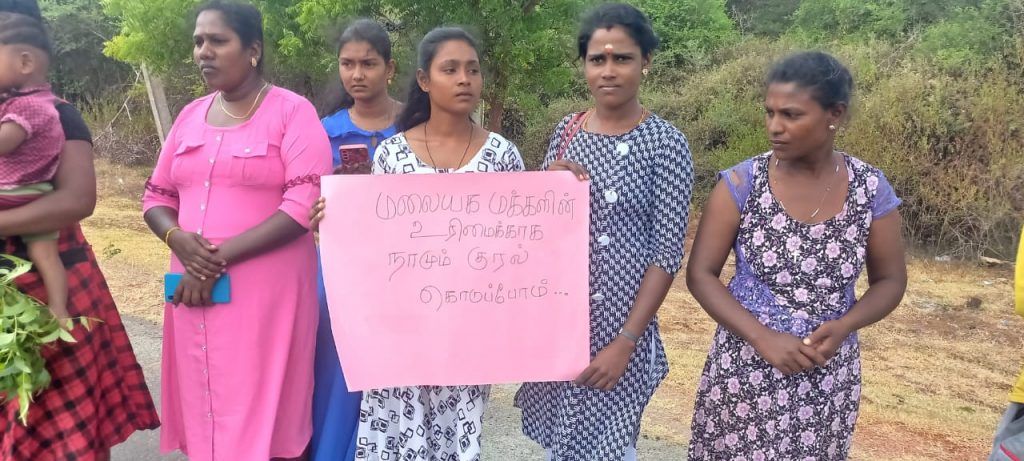 மலையக மக்களின்
உரிமைக்காக
நாமும் குரல்
கொடுப்போம்...